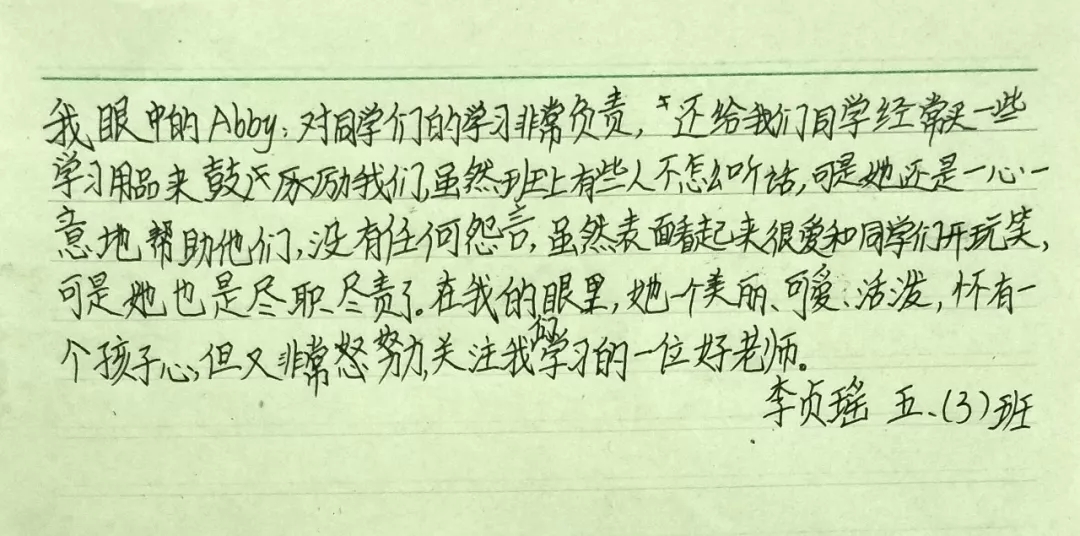 我眼中的Abby：对同学们的学习非常负责，还给我们同学经常买一些
学习用品来鼓励我们，虽然班上有些人不怎么听话，可是她还是一心一
意地帮助他们，没有任何怨言，虽然表面看起来很爱和同学们开玩笑，
可是她也是尽职尽责了。在我的眼里，她一个美丽、可爱、活泼，怀有一
个孩子心，但又非常努力，关注我们学习的一位好老师。
李贞瑶 五、(3)班